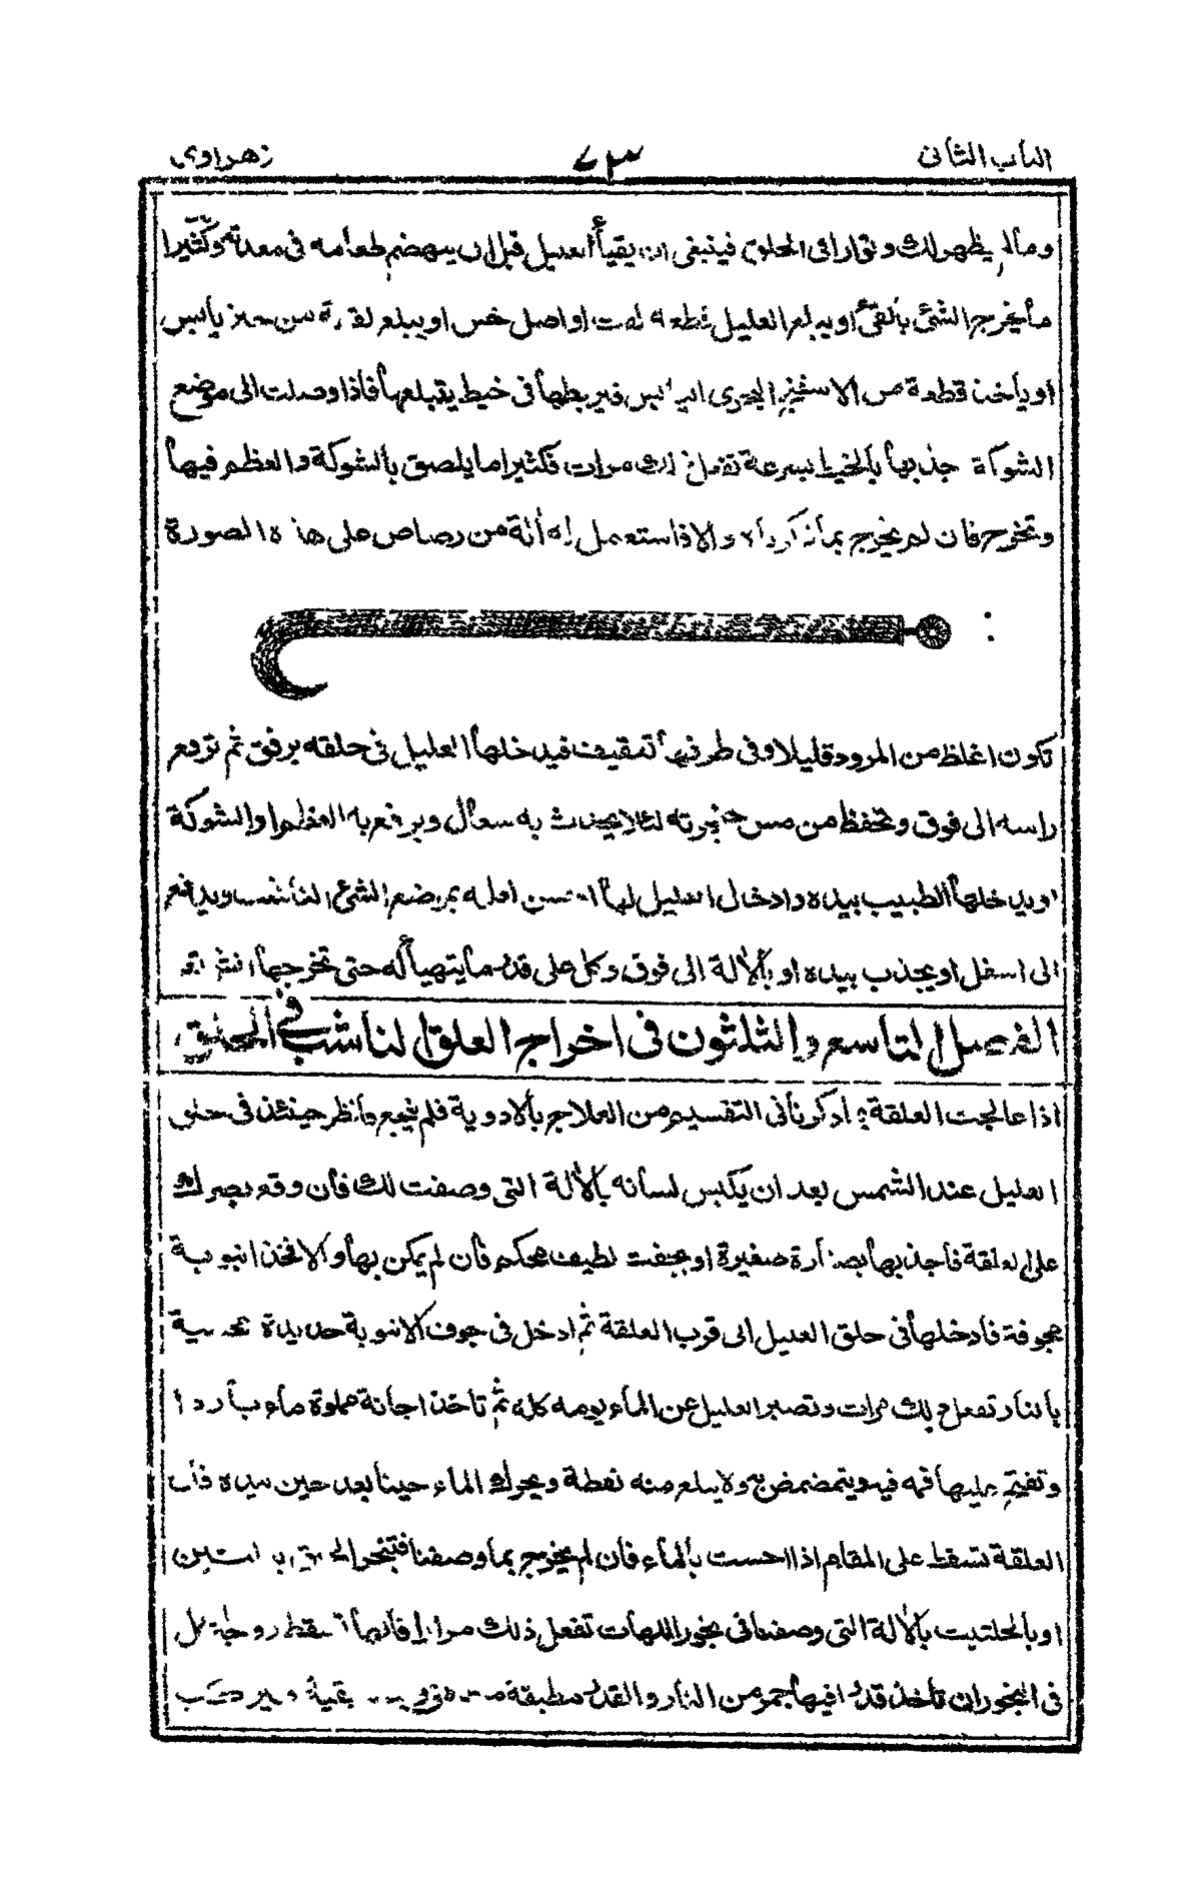 الباب الثانى ٧٣ زهراوى
ومالم يظهر لك وتوارا فى الحلق فينبغى ان يقيأ العليل قبل ان ينهضم طعامه فى معدته وكثيرا
ما يخرج الشئ بالقئ او يبلع العليل قطعة لفت او اصل خس او يبلع لقمة من خبز يابس
او ياخذ قطعة من الاسفنج البحرى اليابس فيربطها فى خيط يقبلعها فاذا وصلت الى موضع
الشوكة جذبها بالخيط بسرعة تفعل ذلك مرات فكثيرا ما يلصق بالشوكة والعظم فيها
وتخرج فان لم يخرج بما ذكرناه والا فاستعمل له آلة من رصاص على هذه الصورة
تكون اغلظ من المرود قليلا وفى طرفها تعقيف فيدخلها العليل فى حلقه برفق ثم ترفع
راسه الى فوق وتحفظ من مس حنجرته لئلا يحدث به سعال ويرفع به العظم او الشوكة
او يدخلها الطبيب بيده وادخال العليل لها احسن لعلمه بموضع الشئ الناشب ويدافع
الى اسفل او يجذب بيده او بالآلة الى فوق وكل على قدر ما يتهيأ له حتى تخرجها
الفصل التاسع والثلثون فى اخراج العلق الناشب فى الحلق
اذا عالجت العلقة بما ذكرنا فى التقسيم من العلاج بالادوية فلم ينجع فانظر حينئذ فى حلق
العليل عند الشمس بعد ان يكبس لسانه بالآلة التى وصفت لك فان وقع بصرك
على العلقة فاجذبها بصنارة صغيرة او بجفت لطيف محكم فان لم يمكن بها والا فخذ انبوبة
مجوفة فادخلها فى حلق العليل الى قرب العلقة ثم ادخل فى جوف الانبوبة حديدة محمية
بالنار تفعل ذلك مرات وتصبر العليل عن الماء يومه كله ثم تاخذ اجانة مملوة ماء باردا
وتفتح عليها فمه فيه ويتمضمض به ولا يبلع منه نقطة ويحرك الماء حينا بعد حين بيده فان
العلقة تسقط على المقام اذا احست بالماء فان لم يخرج بما وصفنا فتبخر الحلق
او بالحلتيت بالآلة التى وصفنا فى بخور اللهات تفعل ذلك مرارا فانها تسقط
فى البخور ان تاخذ قدرا فيها جمر من النار والقدر مطبقة